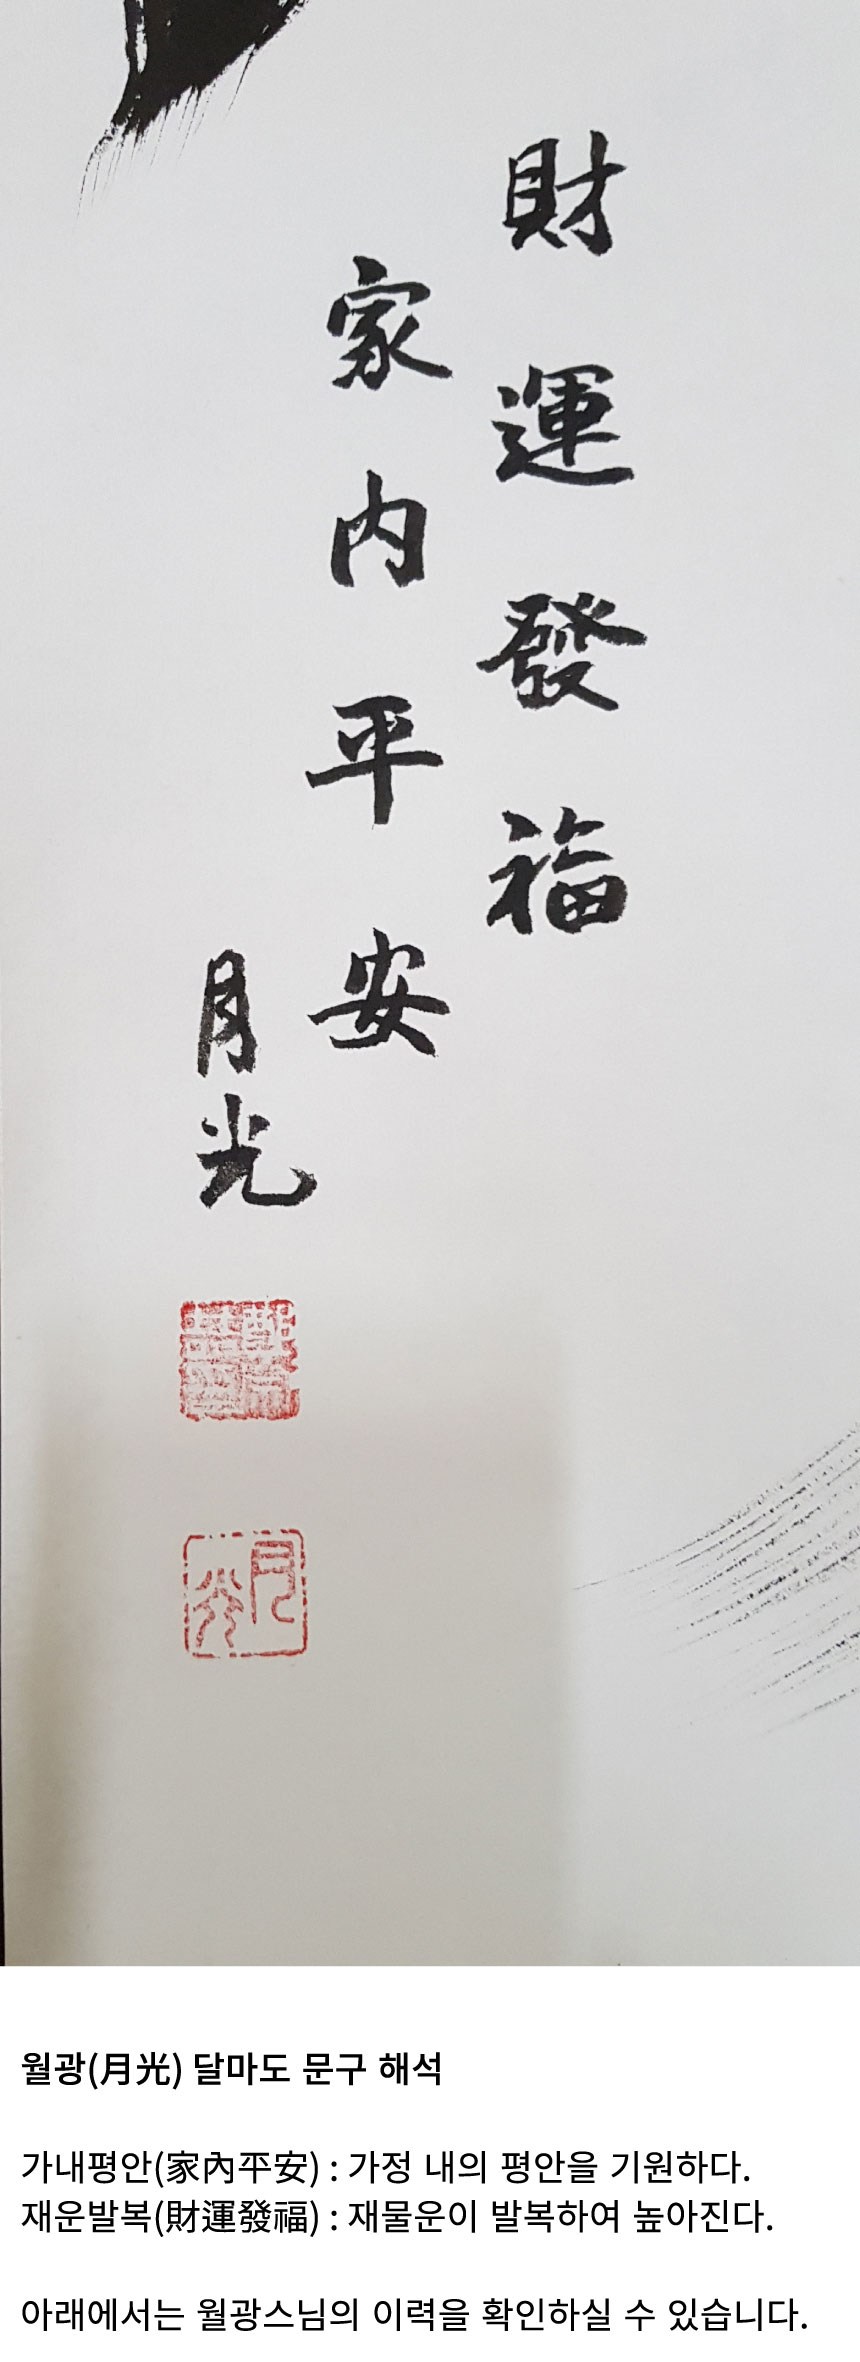 財運發福
家内平安
月光
月光
월광(月光) 달마도 문구 해석
가내평안(家內平安) : 가정 내의 평안을 기원하다.
재운발복(財運發福) : 재물운이 발복하여 높아진다.
아래에서는 월광스님의 이력을 확인하실 수 있습니다.